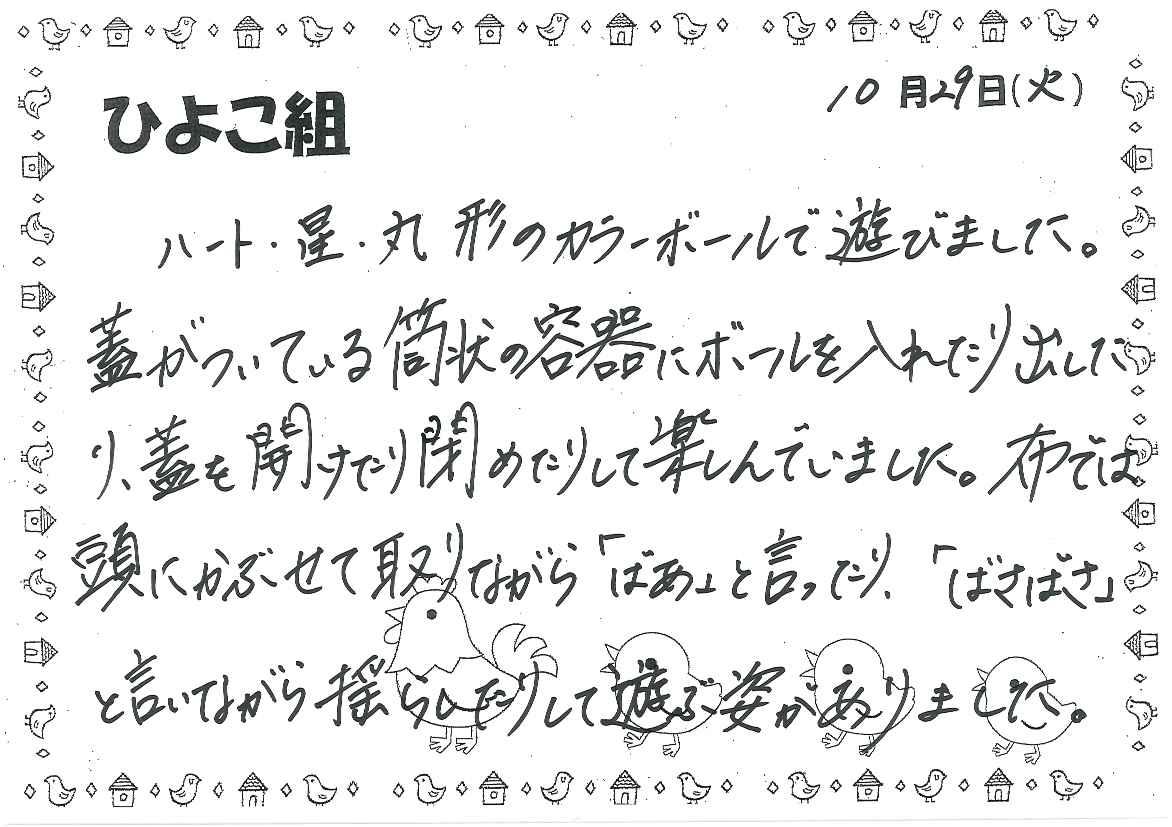 10月29日(火)
ひよこ組
ハート・星・丸形のカラーボールで遊びました。
蓋がついている筒状の容器にボールを入れたり出した
り、蓋を開けたり閉めたりして楽しんでいました。布では
頭にかぶせて取りながら「ばあ」と言ったり、「ばさばさ」
と言いながら揺らしたりして遊ぶ姿がありました。